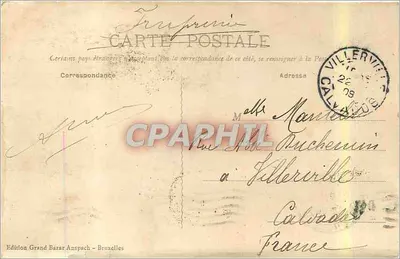 Imprimé
CARTE POSTALE
Certains pays étrangers n'acceptent pas la correspondance de ce côté, se renseigner à la Poste
Correspondance
Adresse
VILLERVILLE
22
09
CALVADOS
Melle
Rue Abbé Duchemin
à Villerville
Calvados
France
CPARAMA.COM
Edition Grand Bazar Anspach — Bruxelles